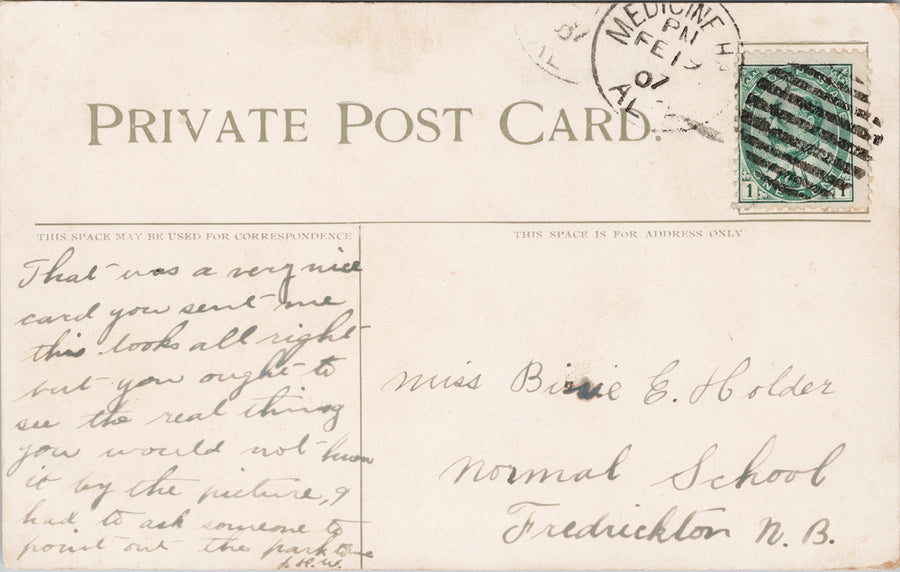 MEDICINE H
PM
FE 19
07
AL
PRIVATE POST CARD.
1 ONE CENT 1
THIS SPACE MAY BE USED FOR CORRESPONDENCE
THIS SPACE IS FOR ADDRESS ONLY
That was a very nice
card you sent me
this looks all right
but you ought to
see the real thing
you would not know
it by the picture, I
had to ask someone to
point out the park to me
J. H. W.
Miss E. Holder
Normal School
Fredrickton N. B.